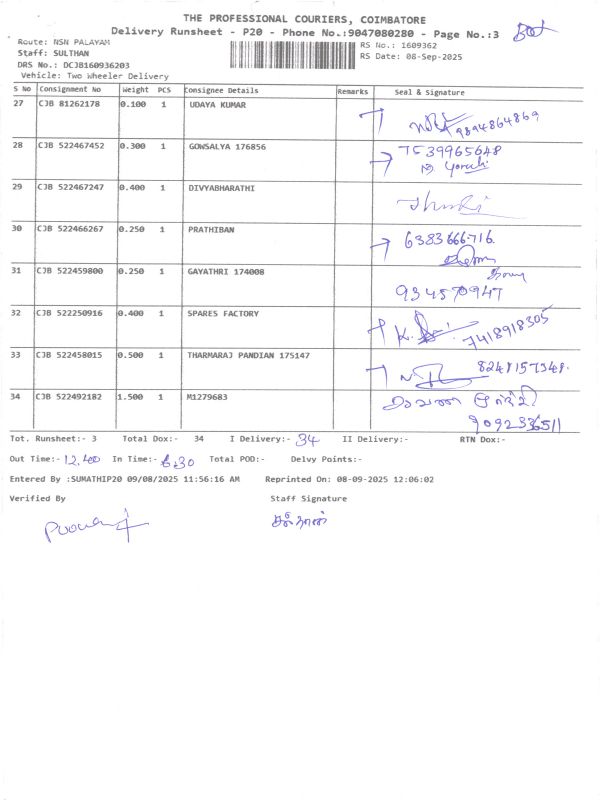 THE PROFESSIONAL COURIERS, COIMBATORE
Delivery Runsheet - P20 - Phone No.:9047080280 - Page No.:3
Route: NSN PALAYAM
RS No.: 1609362
Staff: SULTHAN
RS Date: 08-Sep-2025
DRS No.: DCJB160936203
Vehicle: Two Wheeler Delivery
S No Consignment No Weight PCS Consignee Details Remarks Seal & Signature
27 CJB 81262178 0.100 1 UDAYA KUMAR
9894864869
28 CJB 522467452 0.300 1 GOWSALYA 176856
7539965648
29 CJB 522467247 0.400 1 DIVYABHARATHI
30 CJB 522466267 0.250 1 PRATHIBAN
6383666716
31 CJB 522459800 0.250 1 GAYATHRI 174008
934570947
32 CJB 522250916 0.400 1 SPARES FACTORY
7418918305
33 CJB 522458015 0.500 1 THARMARAJ PANDIAN 175147
8248157348.
34 CJB 522492182 1.500 1 M1279683
9092336511
Tot. Runsheet:- 3 Total Dox:- 34 I Delivery:- 34 II Delivery:- RTN Dox:-
Out Time:- 12.400 In Time:- 6.30 Total POD:- Delvy Points:-
Entered By :SUMATHIP20 09/08/2025 11:56:16 AM Reprinted On: 08-09-2025 12:06:02
Verified By Staff Signature
சுல்தான்